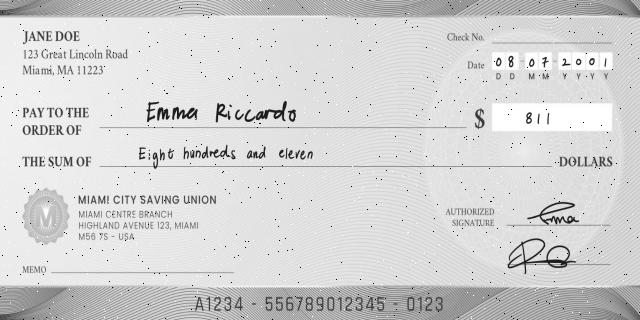 JANE DOE
123 Great Lincoln Road
Miami, MA 11223
Check No.
Date 08 07 2001
D D M M Y Y Y Y
PAY TO THE
ORDER OF Emma Riccardo
$ 811
THE SUM OF Eight hundreds and eleven DOLLARS
M
MIAMI CITY SAVING UNION
MIAMI CENTRE BRANCH
HIGHLAND AVENUE 123, MIAMI
M56 7S - USA
AUTHORIZED
SIGNATURE
Emma
MEMO
A1234 - 556789012345 - 0123